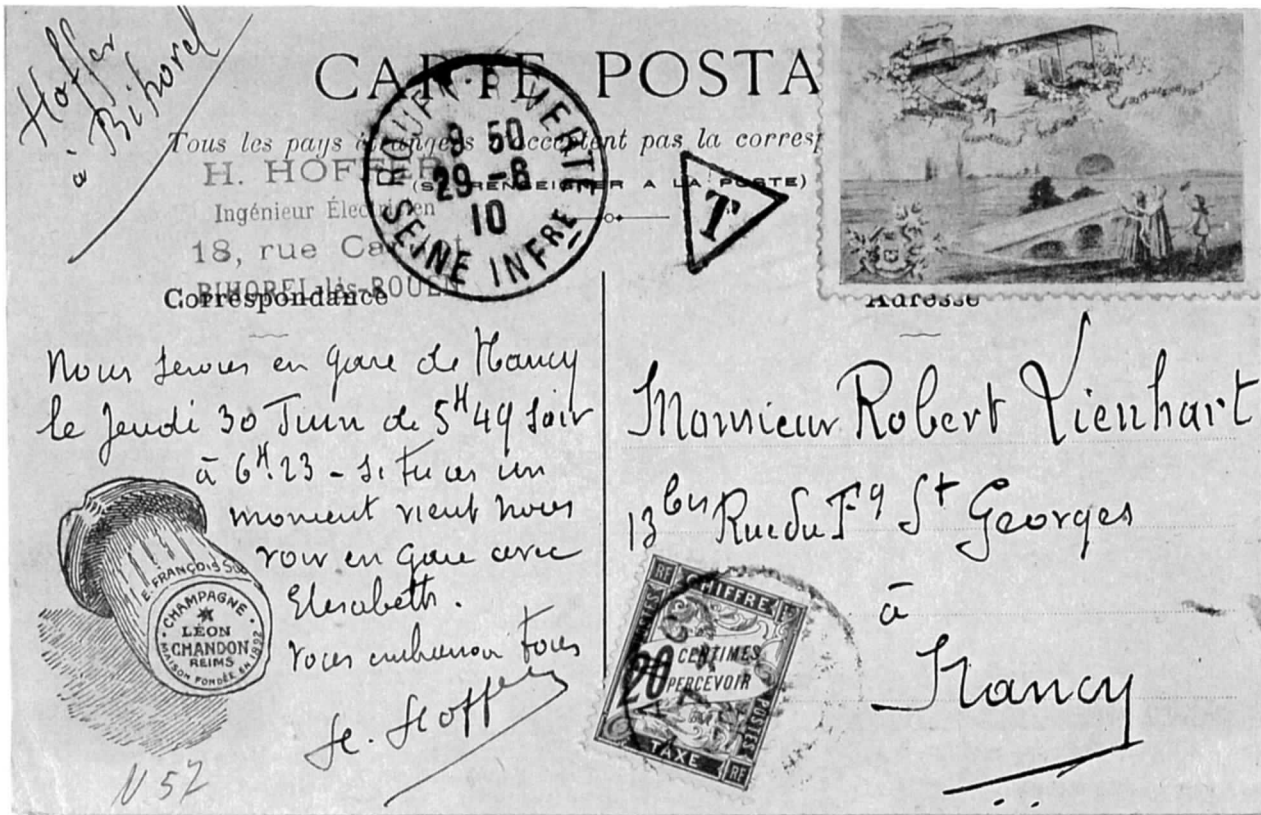 Hoffer
à Bihorel
CARTE POSTA
Tous les pays étrangers n'acceptent pas la corresp
(SE RENSEIGNER A LA POSTE)
H. HOFFER
Ingénieur Électricien
18, rue Ca
BIHOREL-lès-ROUEN
ROUEN P VERTE
9 50
29 -6
10
SEINE INFRE
T
Correspondance
Adresse
Nous serons en gare de Nancy
le Jeudi 30 Juin de 5H49 soir
à 6H.23 - si tu as un
moment vient nous
voir en gare avec
Elisabeth.
vous embrasse tous
H. Hoffer
E. FRANÇOIS
CHAMPAGNE
LÉON
CHANDON
REIMS
MAISON FONDÉE EN 1892
N 57
Monsieur Robert Lienhart
13 bis Rue du Fg St Georges
à
Nancy
RF
CHIFFRE
20 CENTIMES
A PERCEVOIR
POSTES
TAXE
RF